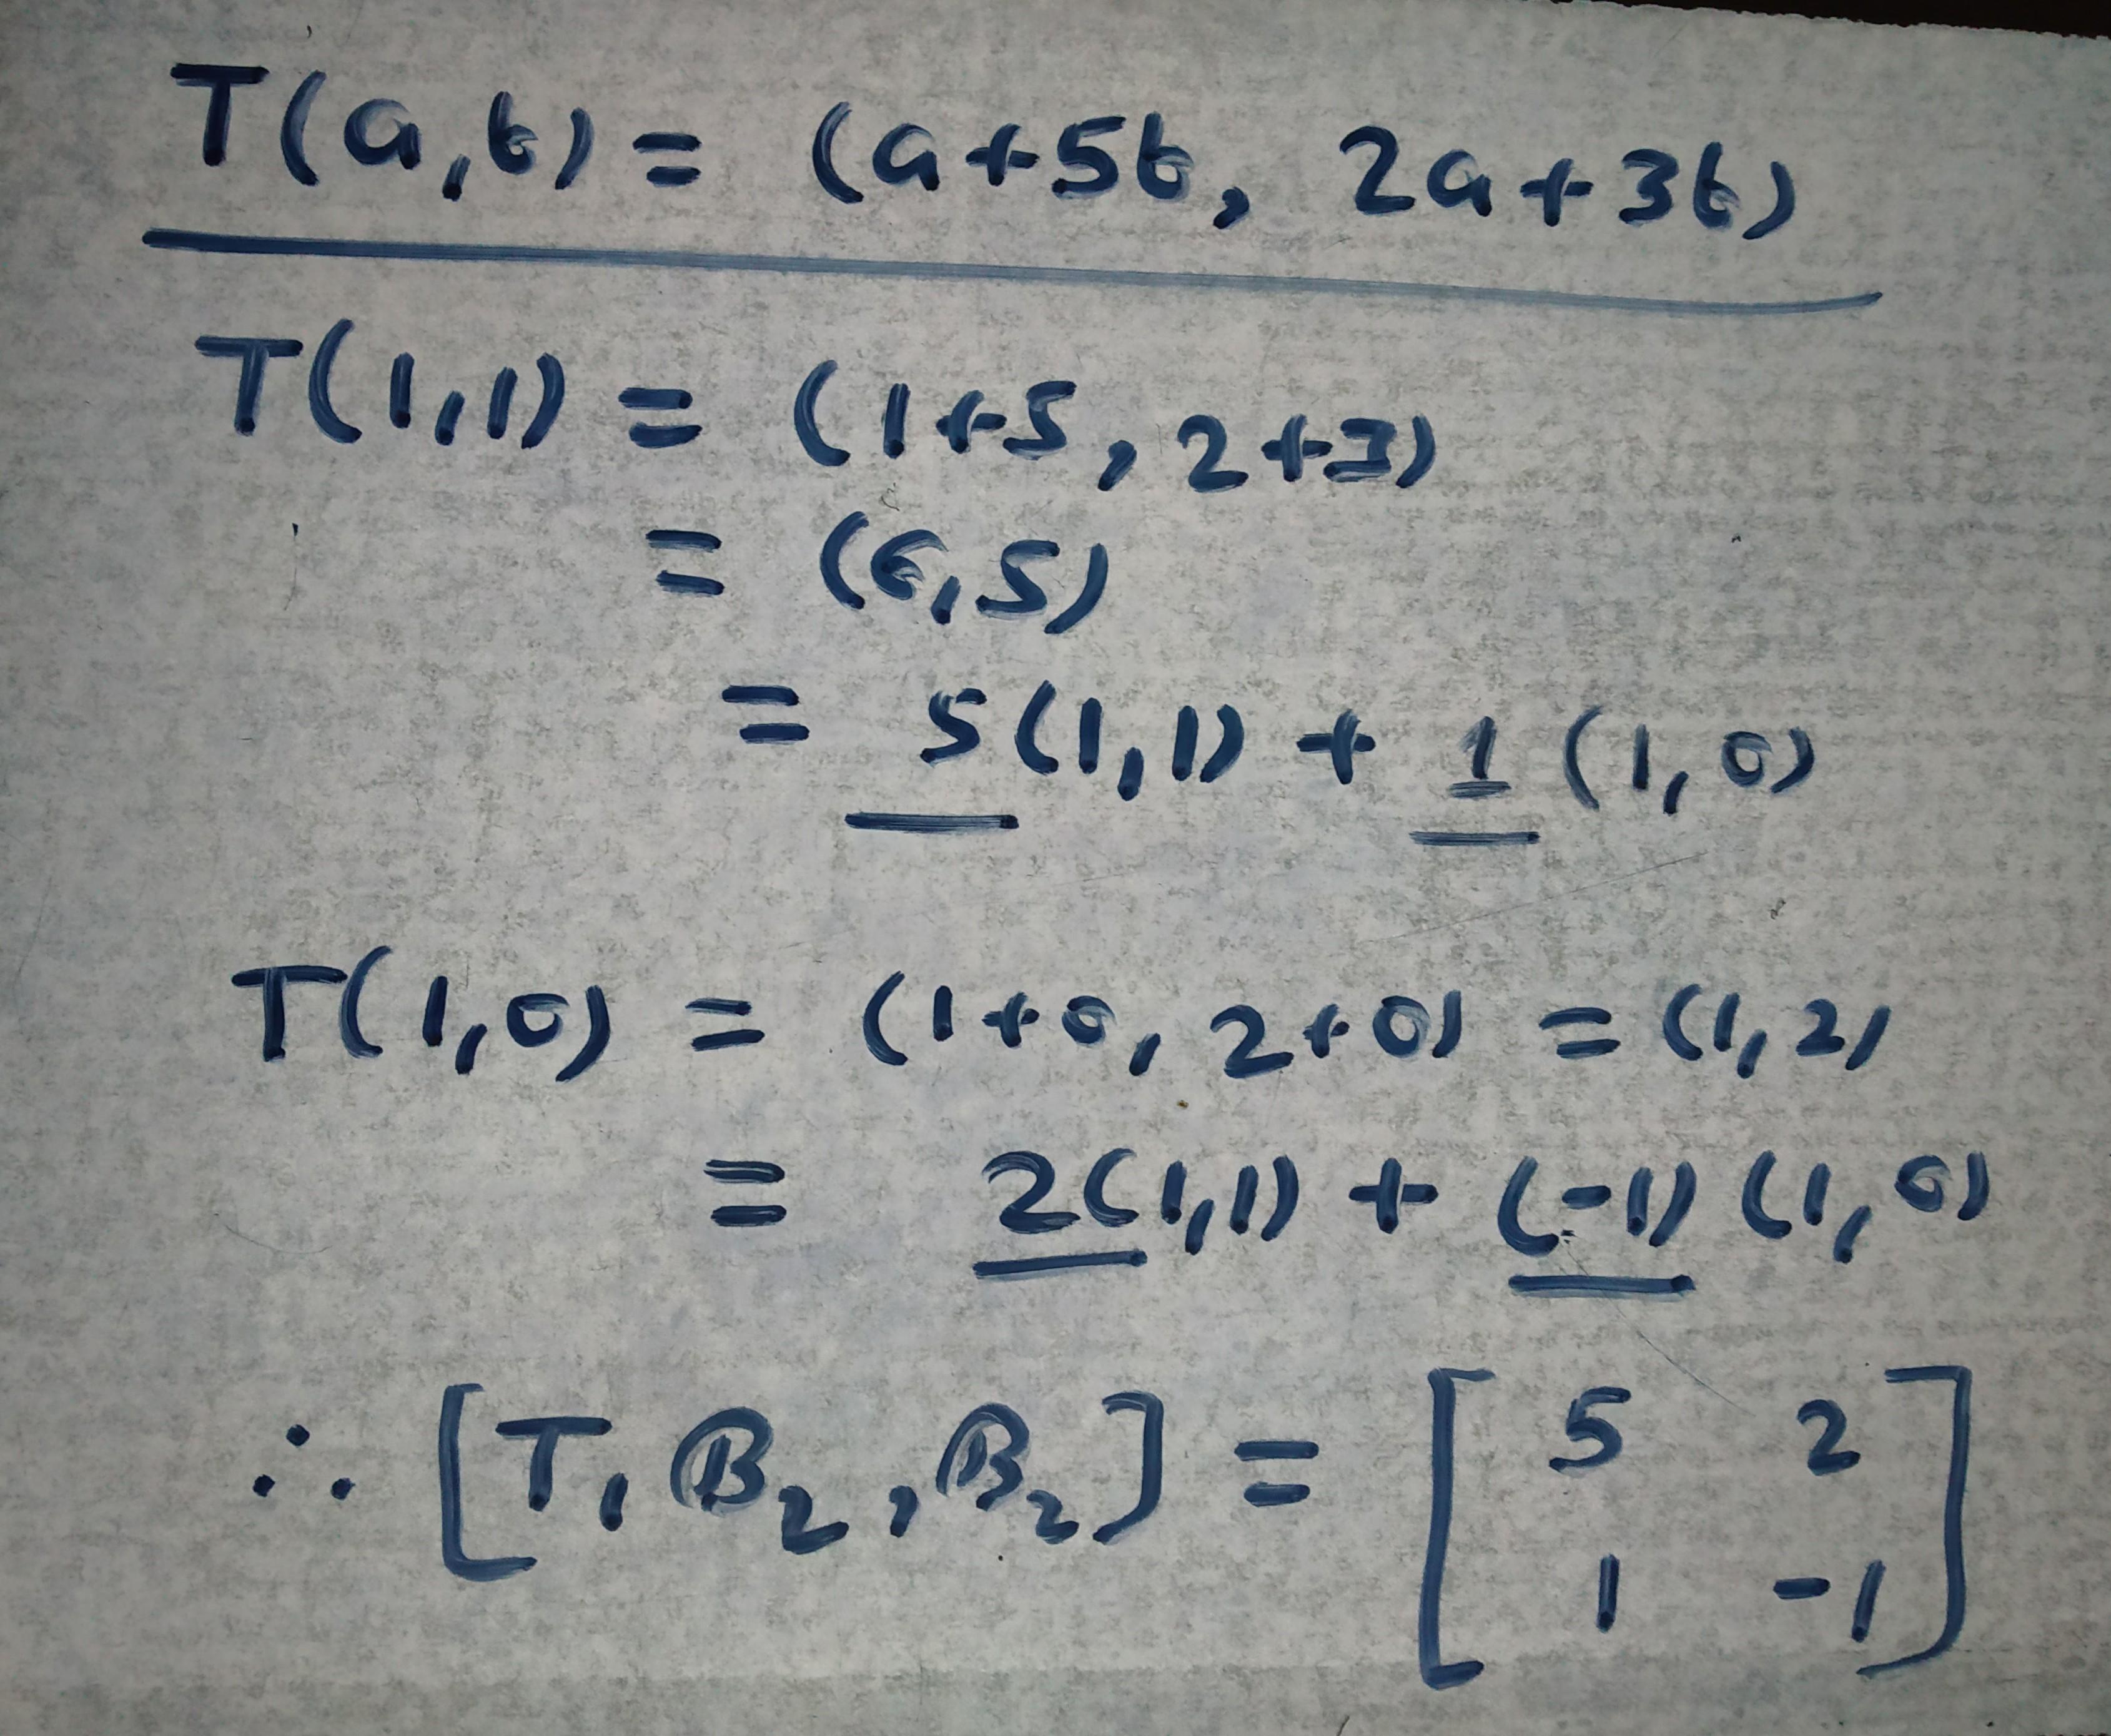 T(a,b) = (a+5b, 2a+3b)
T(1,1) = (1+5, 2+3)
= (6,5)
= 5(1,1) + 1(1,0)
T(1,0) = (1+0, 2+0) = (1,2)
= 2(1,1) + (-1)(1,0)
∴ [T, B₂, B₂] = [5 2
1 -1]